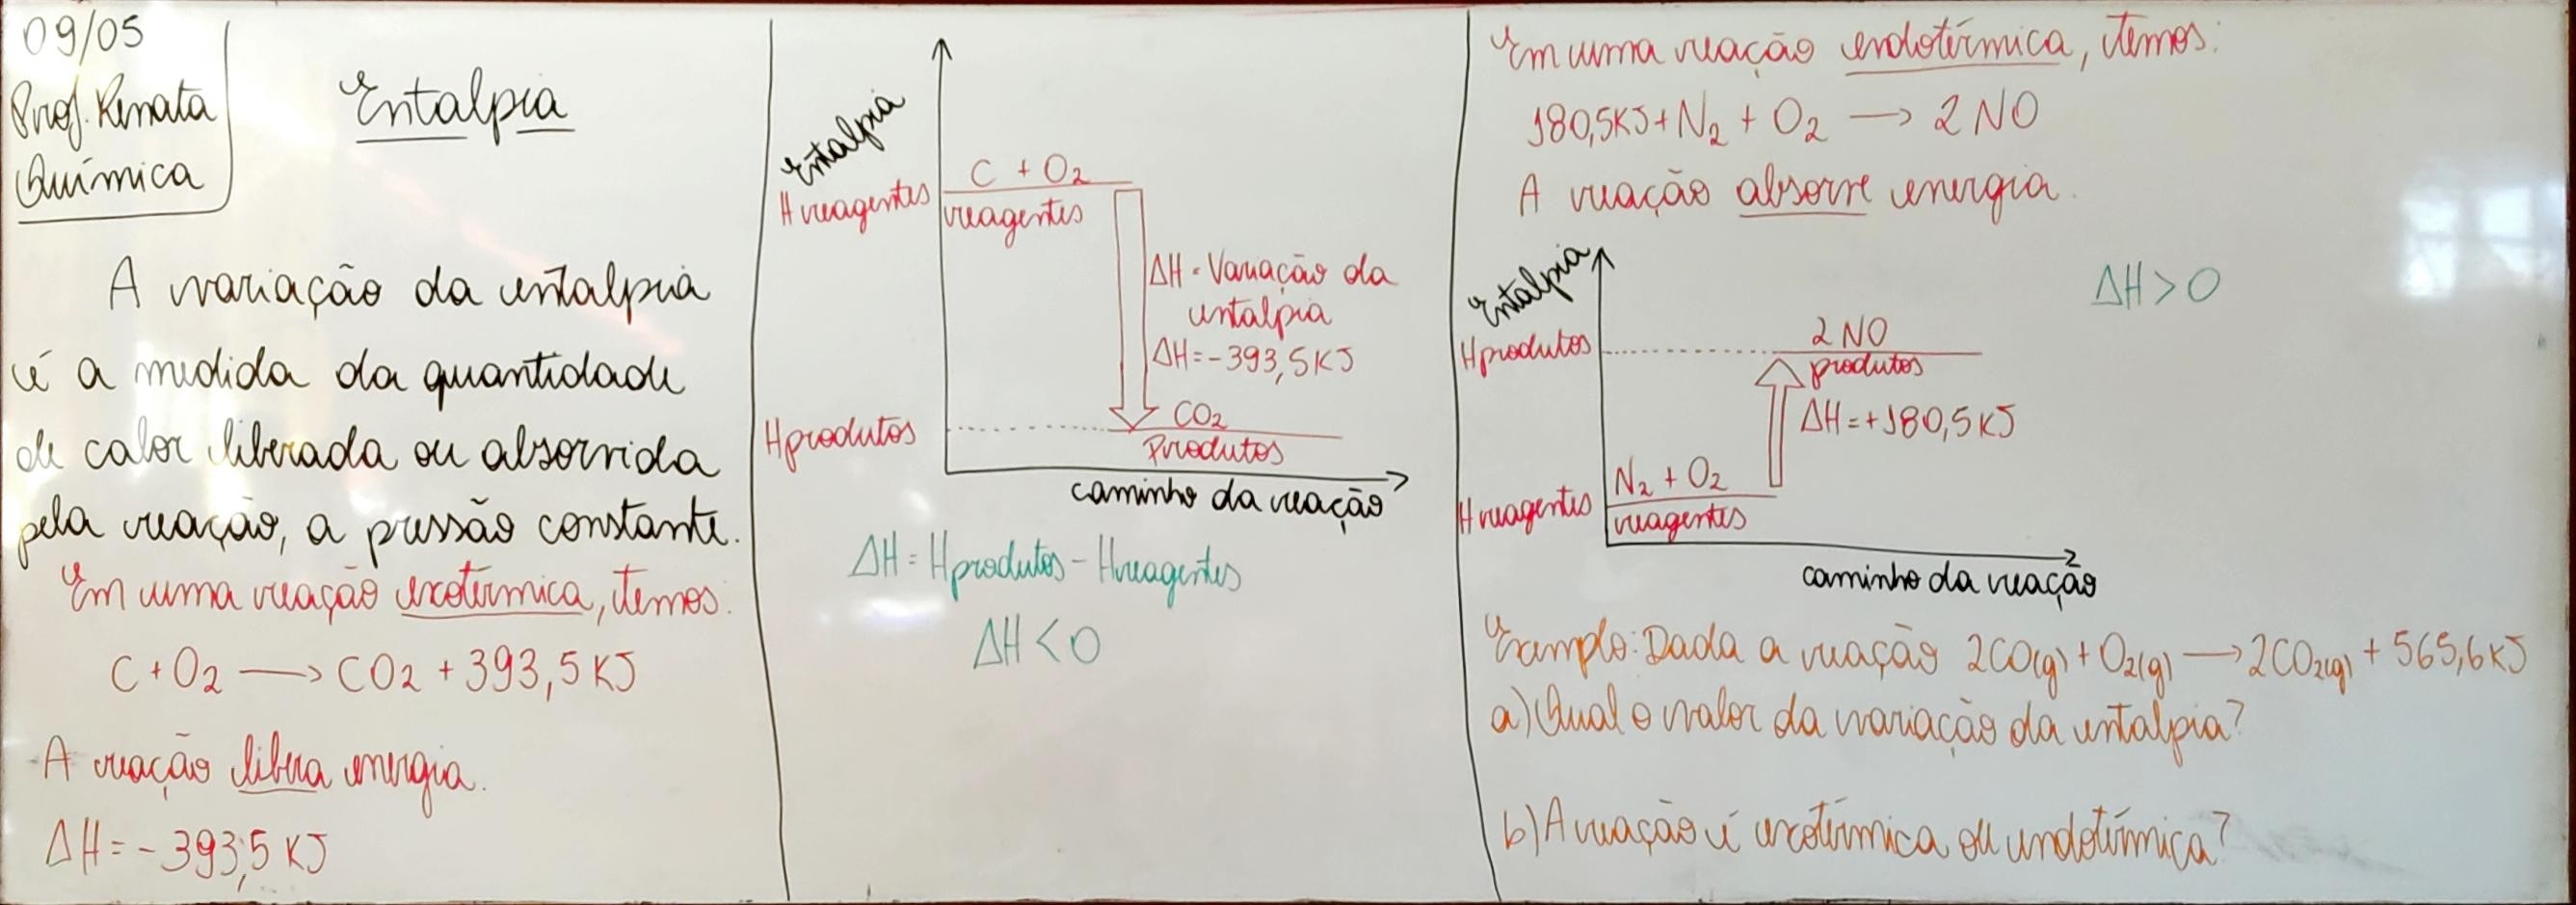 09/05
Prof. Renata
Química
Entalpia
A variação da entalpia
é a medida da quantidade
de calor liberada ou absorvida
pela reação, a pressão constante.
Em uma reação exotérmica, temos:
C + O₂ → CO₂ + 393,5 KJ
A reação libera energia.
ΔH = - 393,5 KJ
Entalpia
C + O₂
H reagentes
reagentes
ΔH = Variação da
entalpia
ΔH = - 393,5 KJ
CO₂
H produtos
Produtos
caminho da reação
ΔH = Hprodutos - Hreagentes
ΔH < 0
Em uma reação endotérmica, temos:
180,5KJ + N₂ + O₂ → 2 NO
A reação absorve energia.
ΔH > 0
Entalpia
2 NO
H produtos
produtos
ΔH = + 180,5 KJ
N₂ + O₂
H reagentes
reagentes
caminho da reação
Exemplo: Dada a reação 2CO(g) + O₂(g) → 2CO₂(g) + 565,6 KJ
a) Qual o valor da variação da entalpia?
b) A reação é exotérmica ou endotérmica?